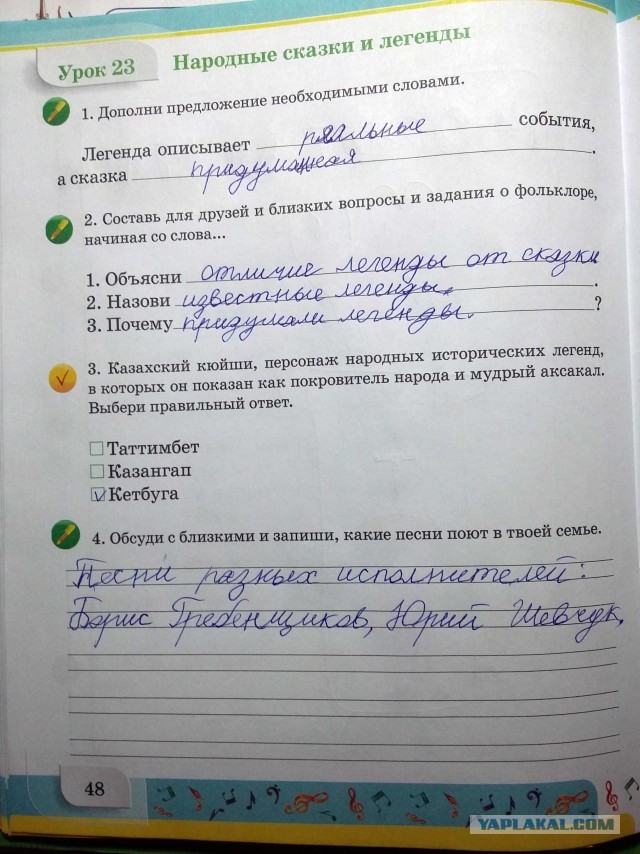 Урок 23
Народные сказки и легенды
1. Дополни предложение необходимыми словами.
Легенда описывает реальные события,
а сказка придуманная.
2. Составь для друзей и близких вопросы и задания о фольклоре,
начиная со слова...
1. Объясни отличие легенды от сказки
2. Назови известные легенды.
3. Почему придумали легенды. ?
3. Казахский кюйши, персонаж народных исторических легенд,
в которых он показан как покровитель народа и мудрый аксакал.
Выбери правильный ответ.
Таттимбет
Казангап
Кетбуга
4. Обсуди с близкими и запиши, какие песни поют в твоей семье.
Песни разных исполнителей:
Борис Гребенщиков, Юрий Шевчук,
48
YAPLAKAL.COM